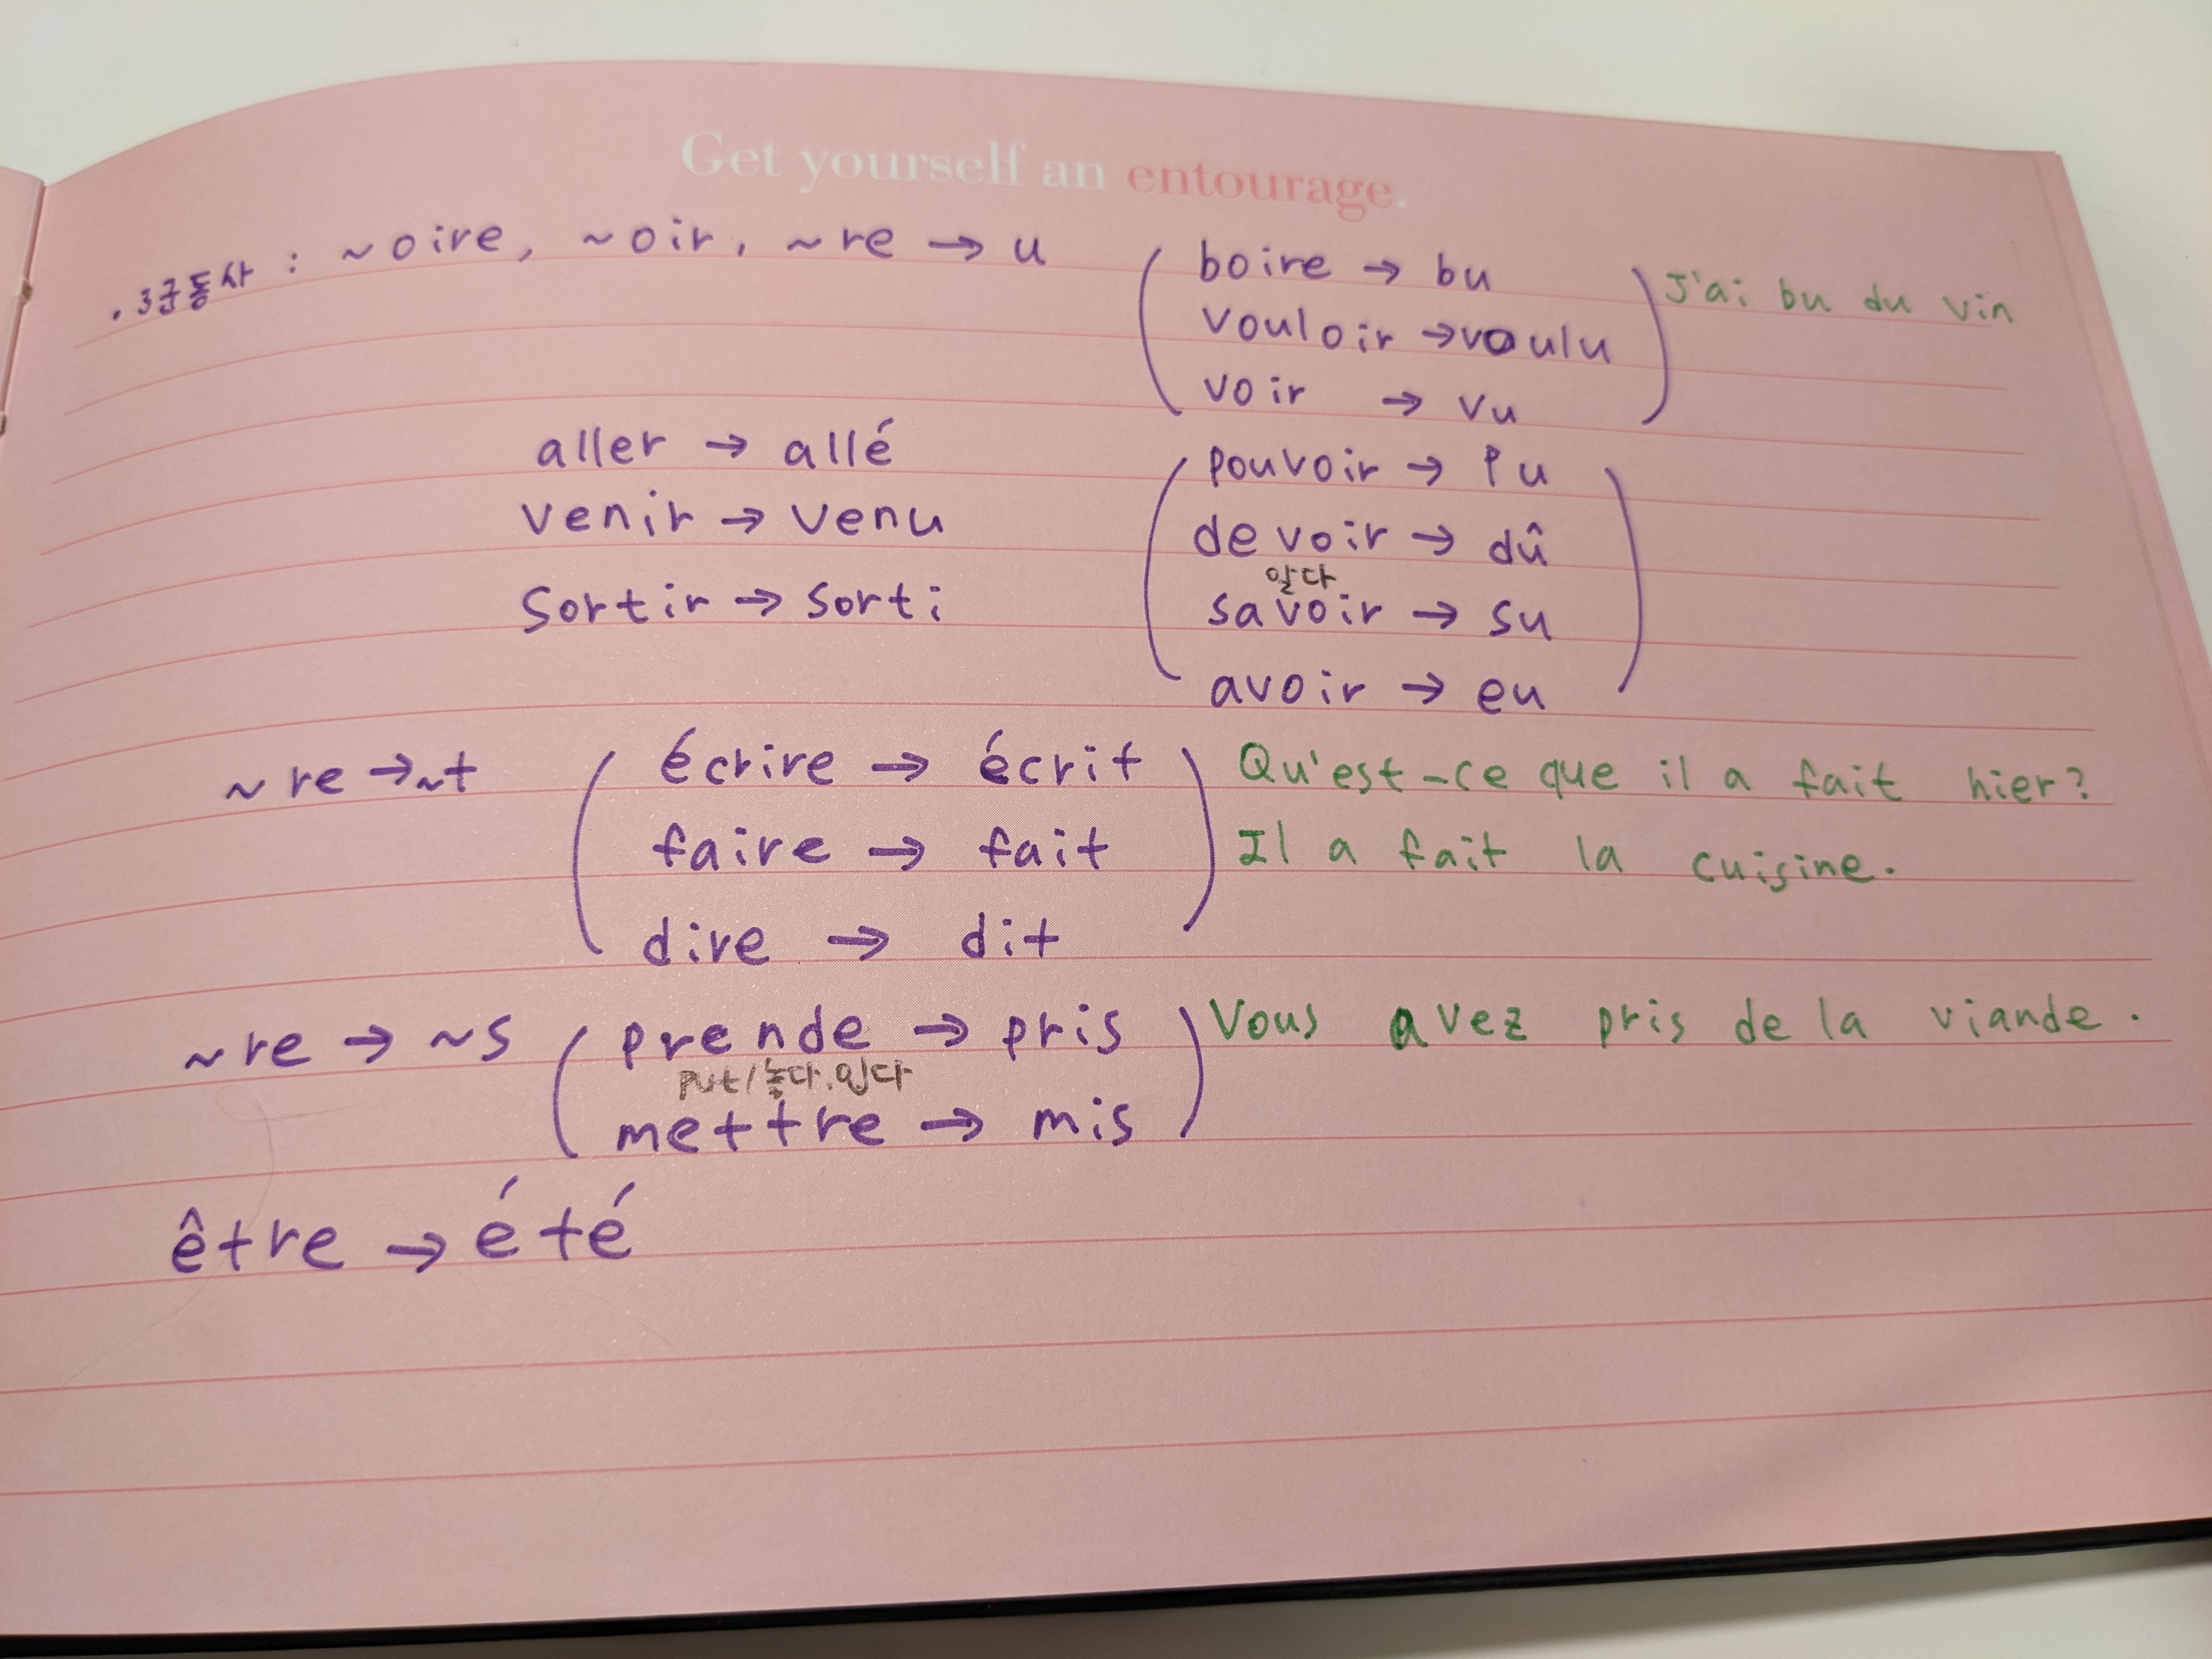 Get yourself an entourage.
. 3군동사 : ~oire, ~oir, ~re → u
( boire → bu ) J'ai bu du vin
vouloir → voulu
voir → vu
aller → allé
venir → venu
sortir → sorti
( pouvoir → pu )
devoir → dû
알다
savoir → su
avoir → eu
~re → ~t ( écrire → écrit ) Qu'est-ce que il a fait hier?
faire → fait Il a fait la cuisine.
dire → dit
~re → ~s ( prende → pris ) Vous avez pris de la viande.
put/놓다.입다
mettre → mis
être → été